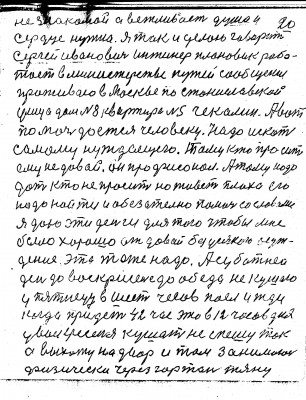 20
не знакомой а вставаит душа и
сердце нужна. Я так и делаю говорит
Сергей иванович инжинер плановик рабо-
таит в министерстве путей сообщении
проживаю в Москве по стониславской
улица дом N8 квартира N5 чекалин. А вот
помоч достся человеку. Надо искат
самому нуждаещего. Тому кто просит
ему недовай. он профисонал. А тому надо
дат кто не просит но живет плохо его
надо найти и обезателно помоч со словами
я даю эти денги для того чтобы мне
было хорошо отдовай без всякого осуж-
дения. Эта тоже надо. А суботнea
ден до воскрисенев до обеда не кушаю
у пятницу в шест часов поел и жди
когда придет 42 час это в 12 часов дня
у воскресеня кушат не спешу так
а выхожу на двор и там занимаюс
физически через гортан тяну